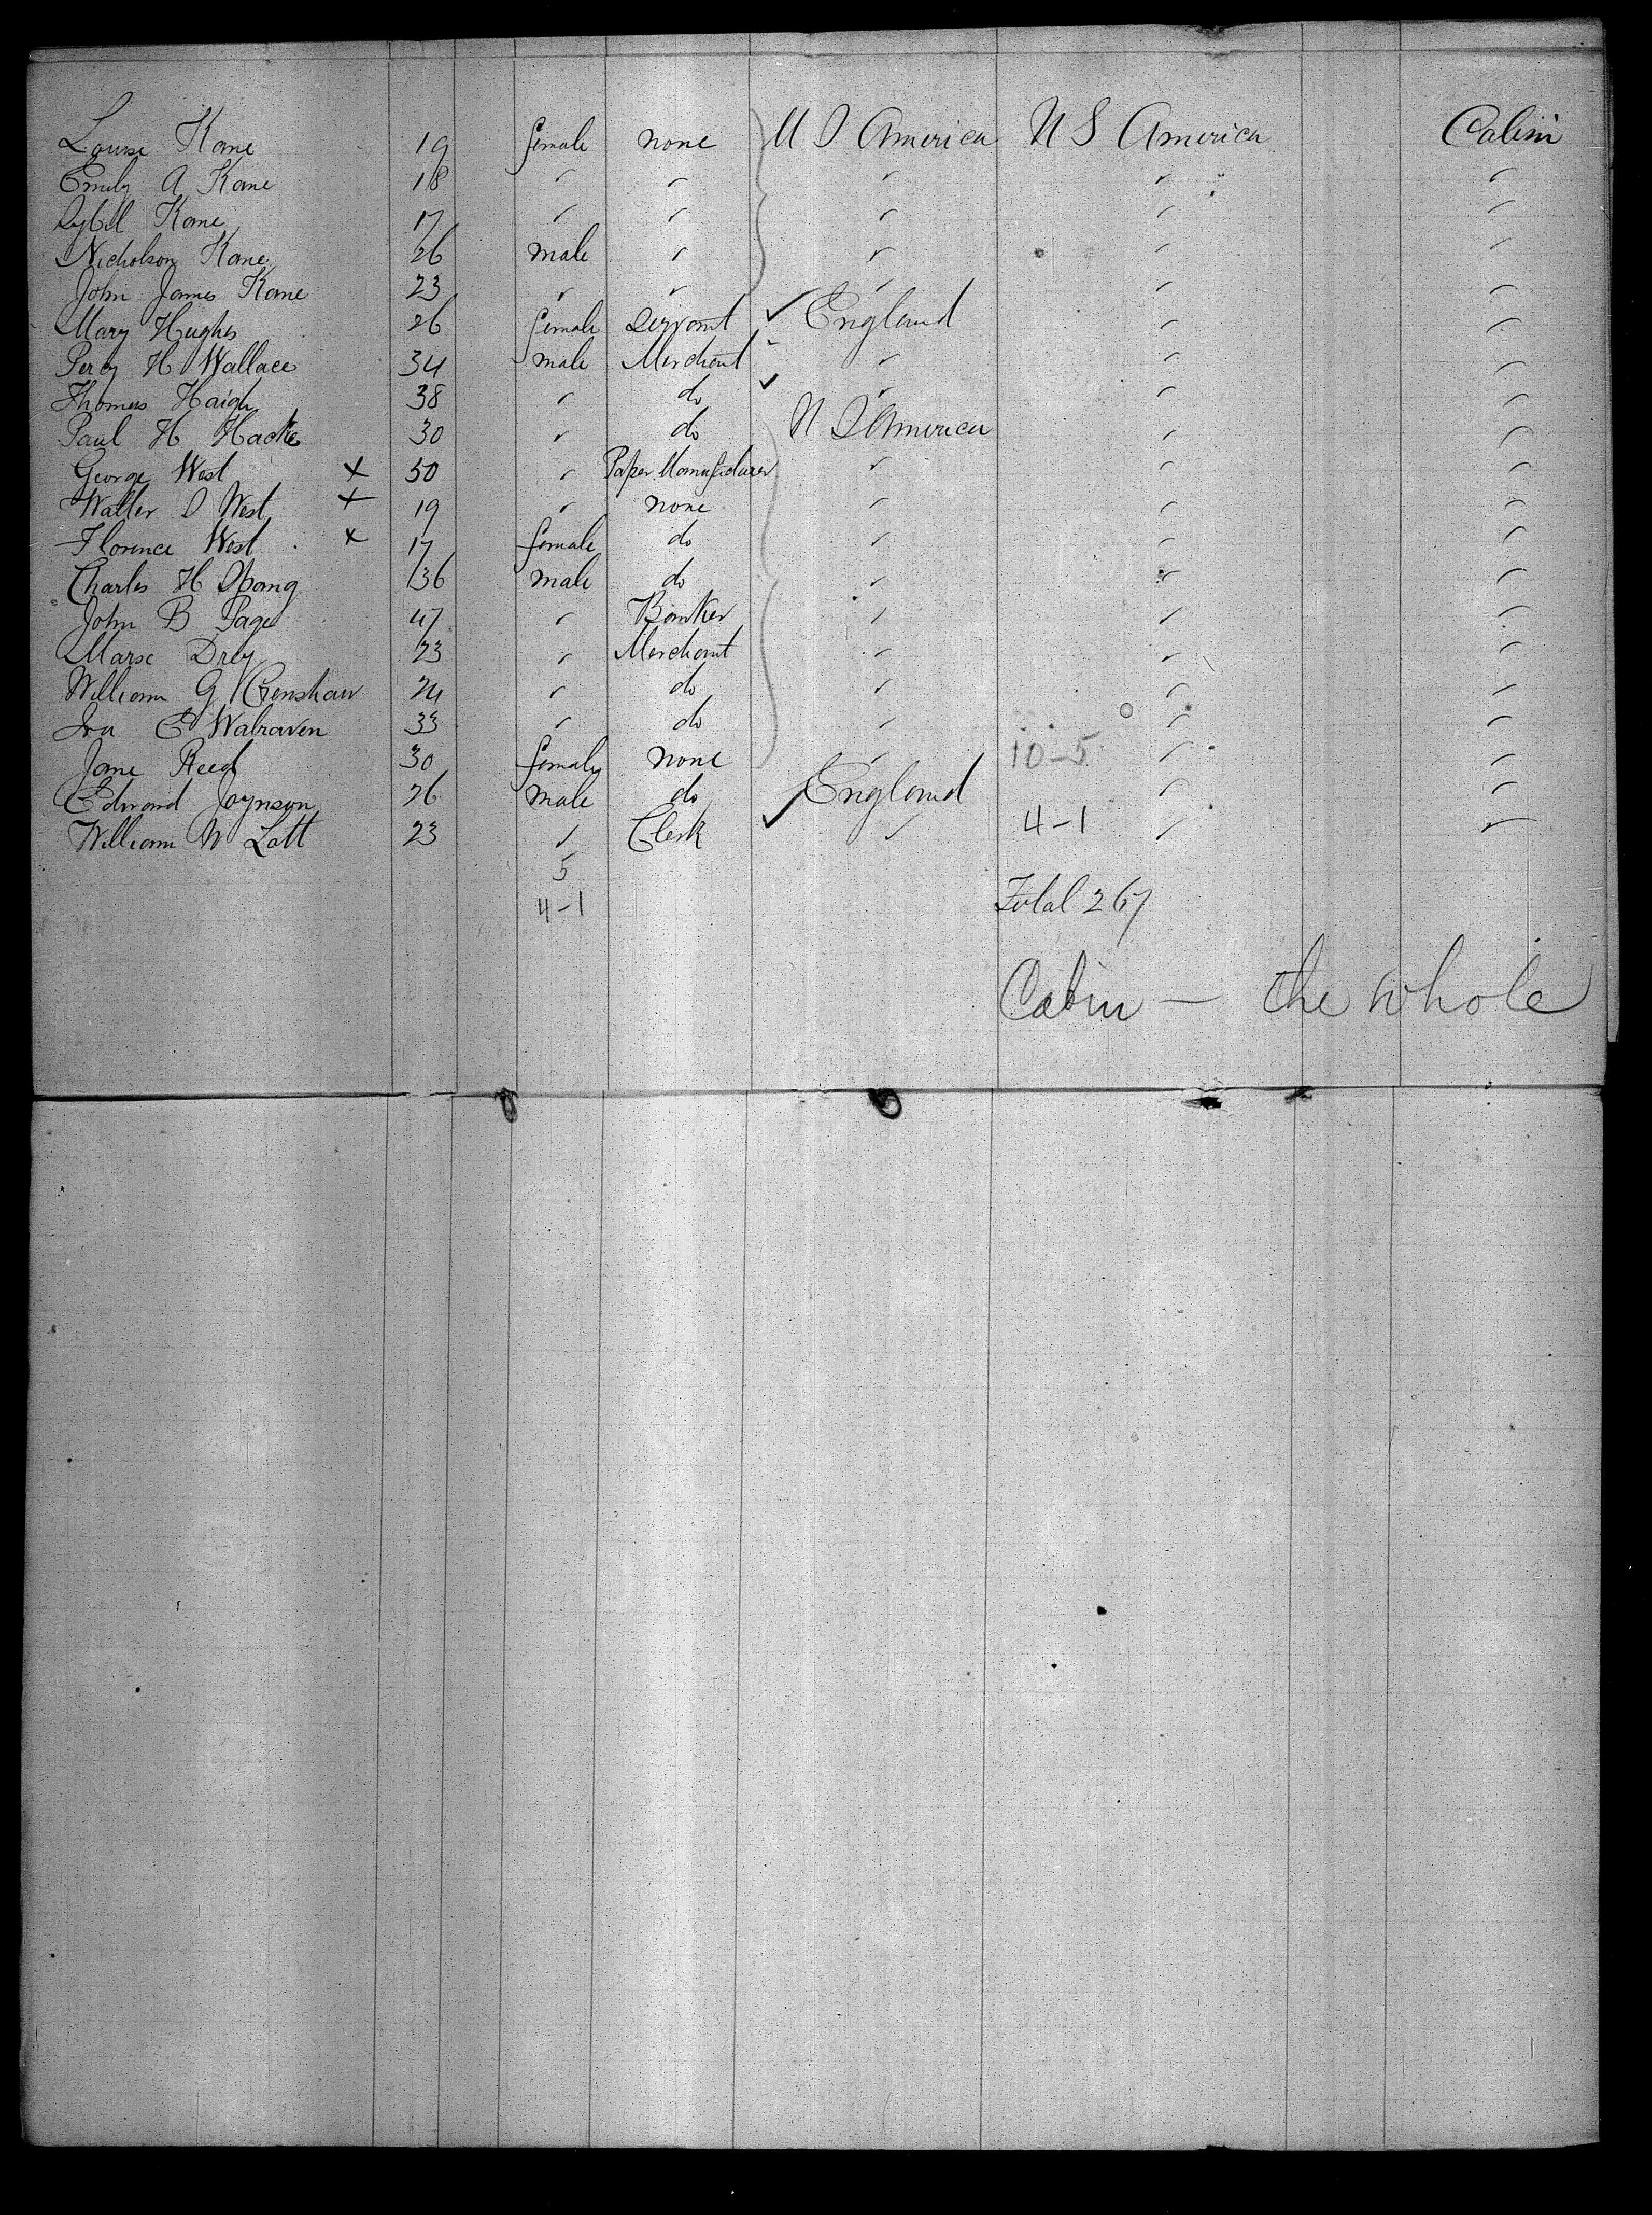 Louise Kane 19 female none U S America U S America Cabin
Emily A Kane 18 " " " " "
Sybil Kane 17 " " " " "
Nicholson Kane 26 male " " " "
John James Kane 23 " " " " "
Mary Hughes 26 female Servant ✓ England " "
Percy H Wallace 34 male Merchant " " "
Thomas Haigh 38 " do ✓ " " "
Paul H Hacke 30 " do U S America " "
George West x 50 " Paper Manufacturer " " "
Walter S West x 19 " none " " "
Florence West x 17 female do " " "
Charles H Spang 36 male do " " "
John B Page 47 " Banker " " "
Marx Drey 23 " Merchant " " "
William G Crenshaw 24 " do " " "
Ira E Walraven 33 " do " " "
Jane Reed 30 female none " 10-5 " "
Edward Joynson 26 male do ✓ England " "
William W Latt 23 " Clerk ✓ " 4-1 " "
5
4-1 Total 267
Cabin — the whole